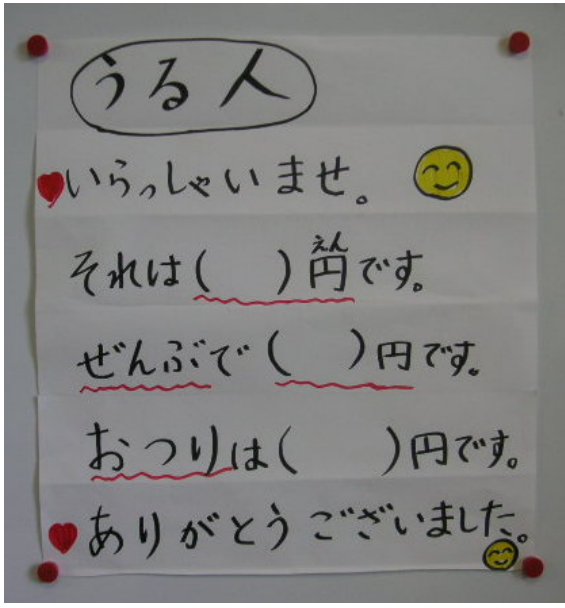 うる人
いらっしゃいませ。
それは(　)円です。
えん
ぜんぶで(　)円です。
おつりは(　)円です。
ありがとうございました。